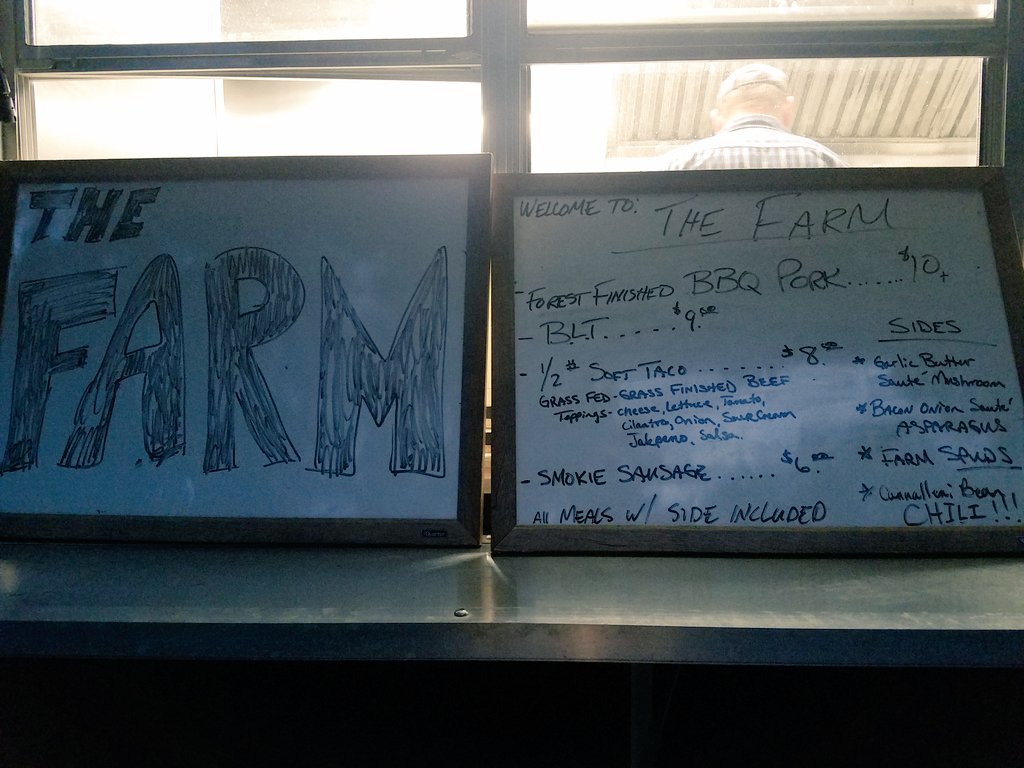 THE
FARM
WELCOME TO: THE FARM
- FOREST FINISHED BBQ PORK....... $10.+
- BLT..... $9.00
- 1/2 # SOFT TACO ........ $8.00
GRASS FED - GRASS FINISHED BEEF
Toppings - Cheese, Lettuce, Tomato,
Cilantro, Onion, Sour Cream
Jalepeno, Salsa.
- SMOKIE SAUSAGE...... $6.00
All MEALS W/ SIDE INCLUDED
SIDES
* Garlic Butter
Sauté Mushroom
* BACON ONION Sauté
ASPARAGUS
* FARM SPUDS
* Cannalleni Bean
CHILI!!!